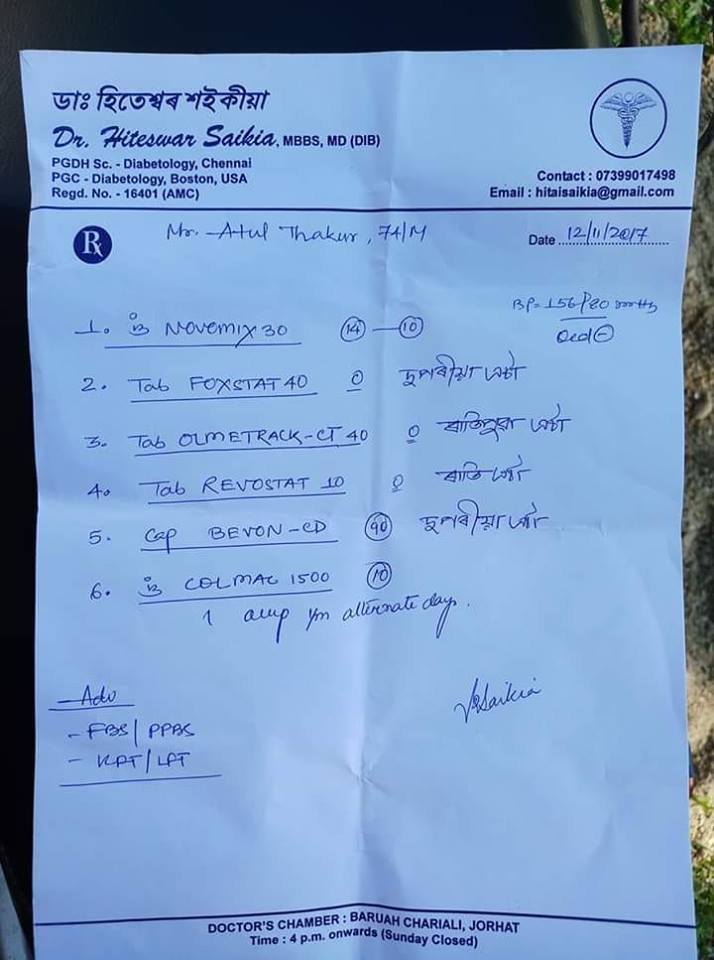 ডাঃ হিতেশ্বৰ শইকীয়া
Dr. Hiteswar Saikia, MBBS, MD (DIB)
PGDH Sc. - Diabetology, Chennai
PGC - Diabetology, Boston, USA
Regd. No. - 16401 (AMC)
Contact : 07399017498
Email : hitaisaikia@gmail.com
Rx Mr. Atul Thakur, 74/M
Date 12/11/2017
BP= 156/80 mmHg
1. NOVOMIX 30 14 — 10
2. Tab FOXSTAT 40 দুপৰীয়া এটা
3. Tab OLMETRACK-CT 40 ৰাতিপুৱা এটা
4. Tab REVOSTAT 10 ৰাতি এটা
5. Cap BEVON-CD 90 দুপৰীয়া এটা
6. COLMAC 1500 10
1 amp I/m alternate day.
- Adv
- FBS/ PPBS
- KFT/ LFT
Saikia
DOCTOR'S CHAMBER : BARUAH CHARIALI, JORHAT
Time : 4 p.m. onwards (Sunday Closed)